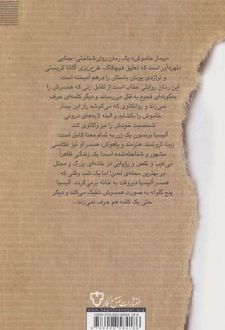 «بیمار خاموش» یک رمان روان‌شناختی-جنایی
دلهره‌آور است که تعلیق هیچکاک، طرح‌ریزی آگاتا کریستی
و تراژدی یونان باستان را درهم آمیخته است.
این رمان روایتی جذاب است از تقابل زنی که همسرش را
به‌گونه‌ای فجیع به قتل می‌رساند و دیگر کلمه‌ای حرف
نمی‌زند و روانکاوی که می‌کوشد راز این بیمار
خاموش را بگشاید و البته لایه‌های درونی
شخصیت خودش را نیز واکاوی کند.
آلیسیا برنسون یک زن به تمام معنا کامل است:
زیبا، ثروتمند، هنرمند و باهوش، همسر او نیز عکاسی
مشهور و شناخته‌شده است؛ یک زندگی ظاهراً
بی‌عیب و نقص و رؤیایی در خانه‌ای بزرگ و مجلل
در بهترین محله‌ی لندن! اما یک شب وقتی که
همسر آلیسیا دیروقت به خانه برمی‌گردد، آلیسیا
پنج گلوله به صورت همسرش شلیک می‌کند و دیگر
حتی یک کلمه هم حرف نمی‌زند.